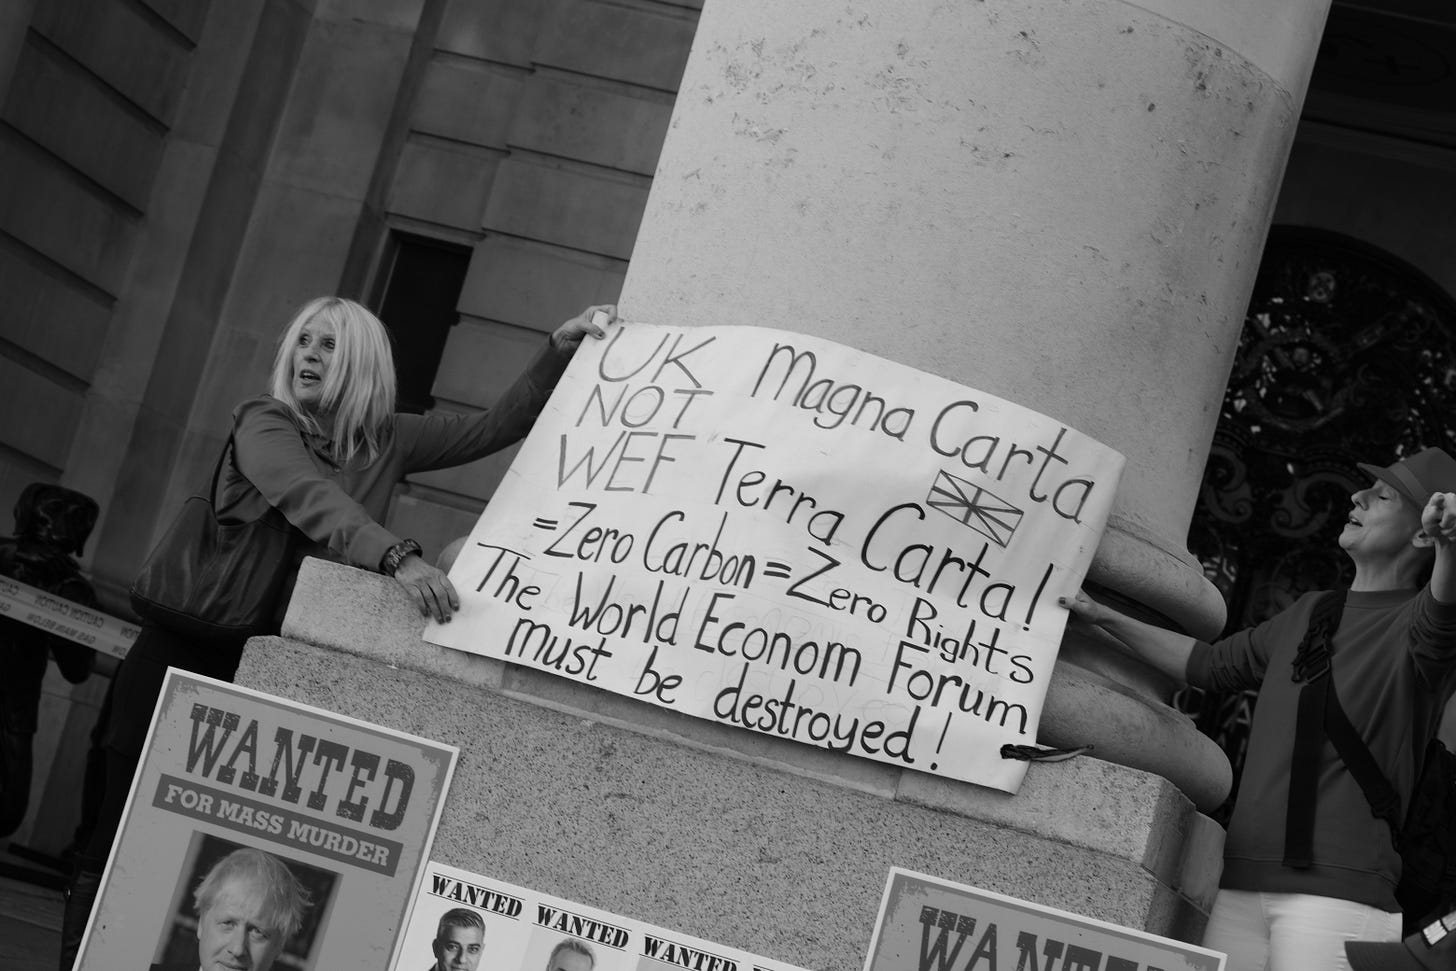 UK Magna Carta
NOT
WEF "Terra Carta!
=Zero Carbon=Zero Rights
The World Econom Forum
must be destroyed!
WANTED
FOR MASS MURDER
WANTED
WANTED
WANTED
WANTED